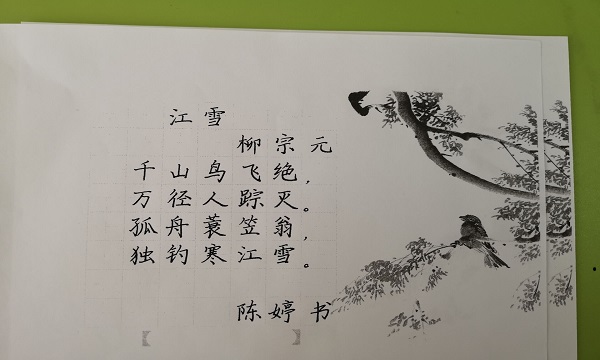 江雪
柳宗元
千山鸟飞绝，
万径人踪灭。
孤舟蓑笠翁，
独钓寒江雪。
陈婷书